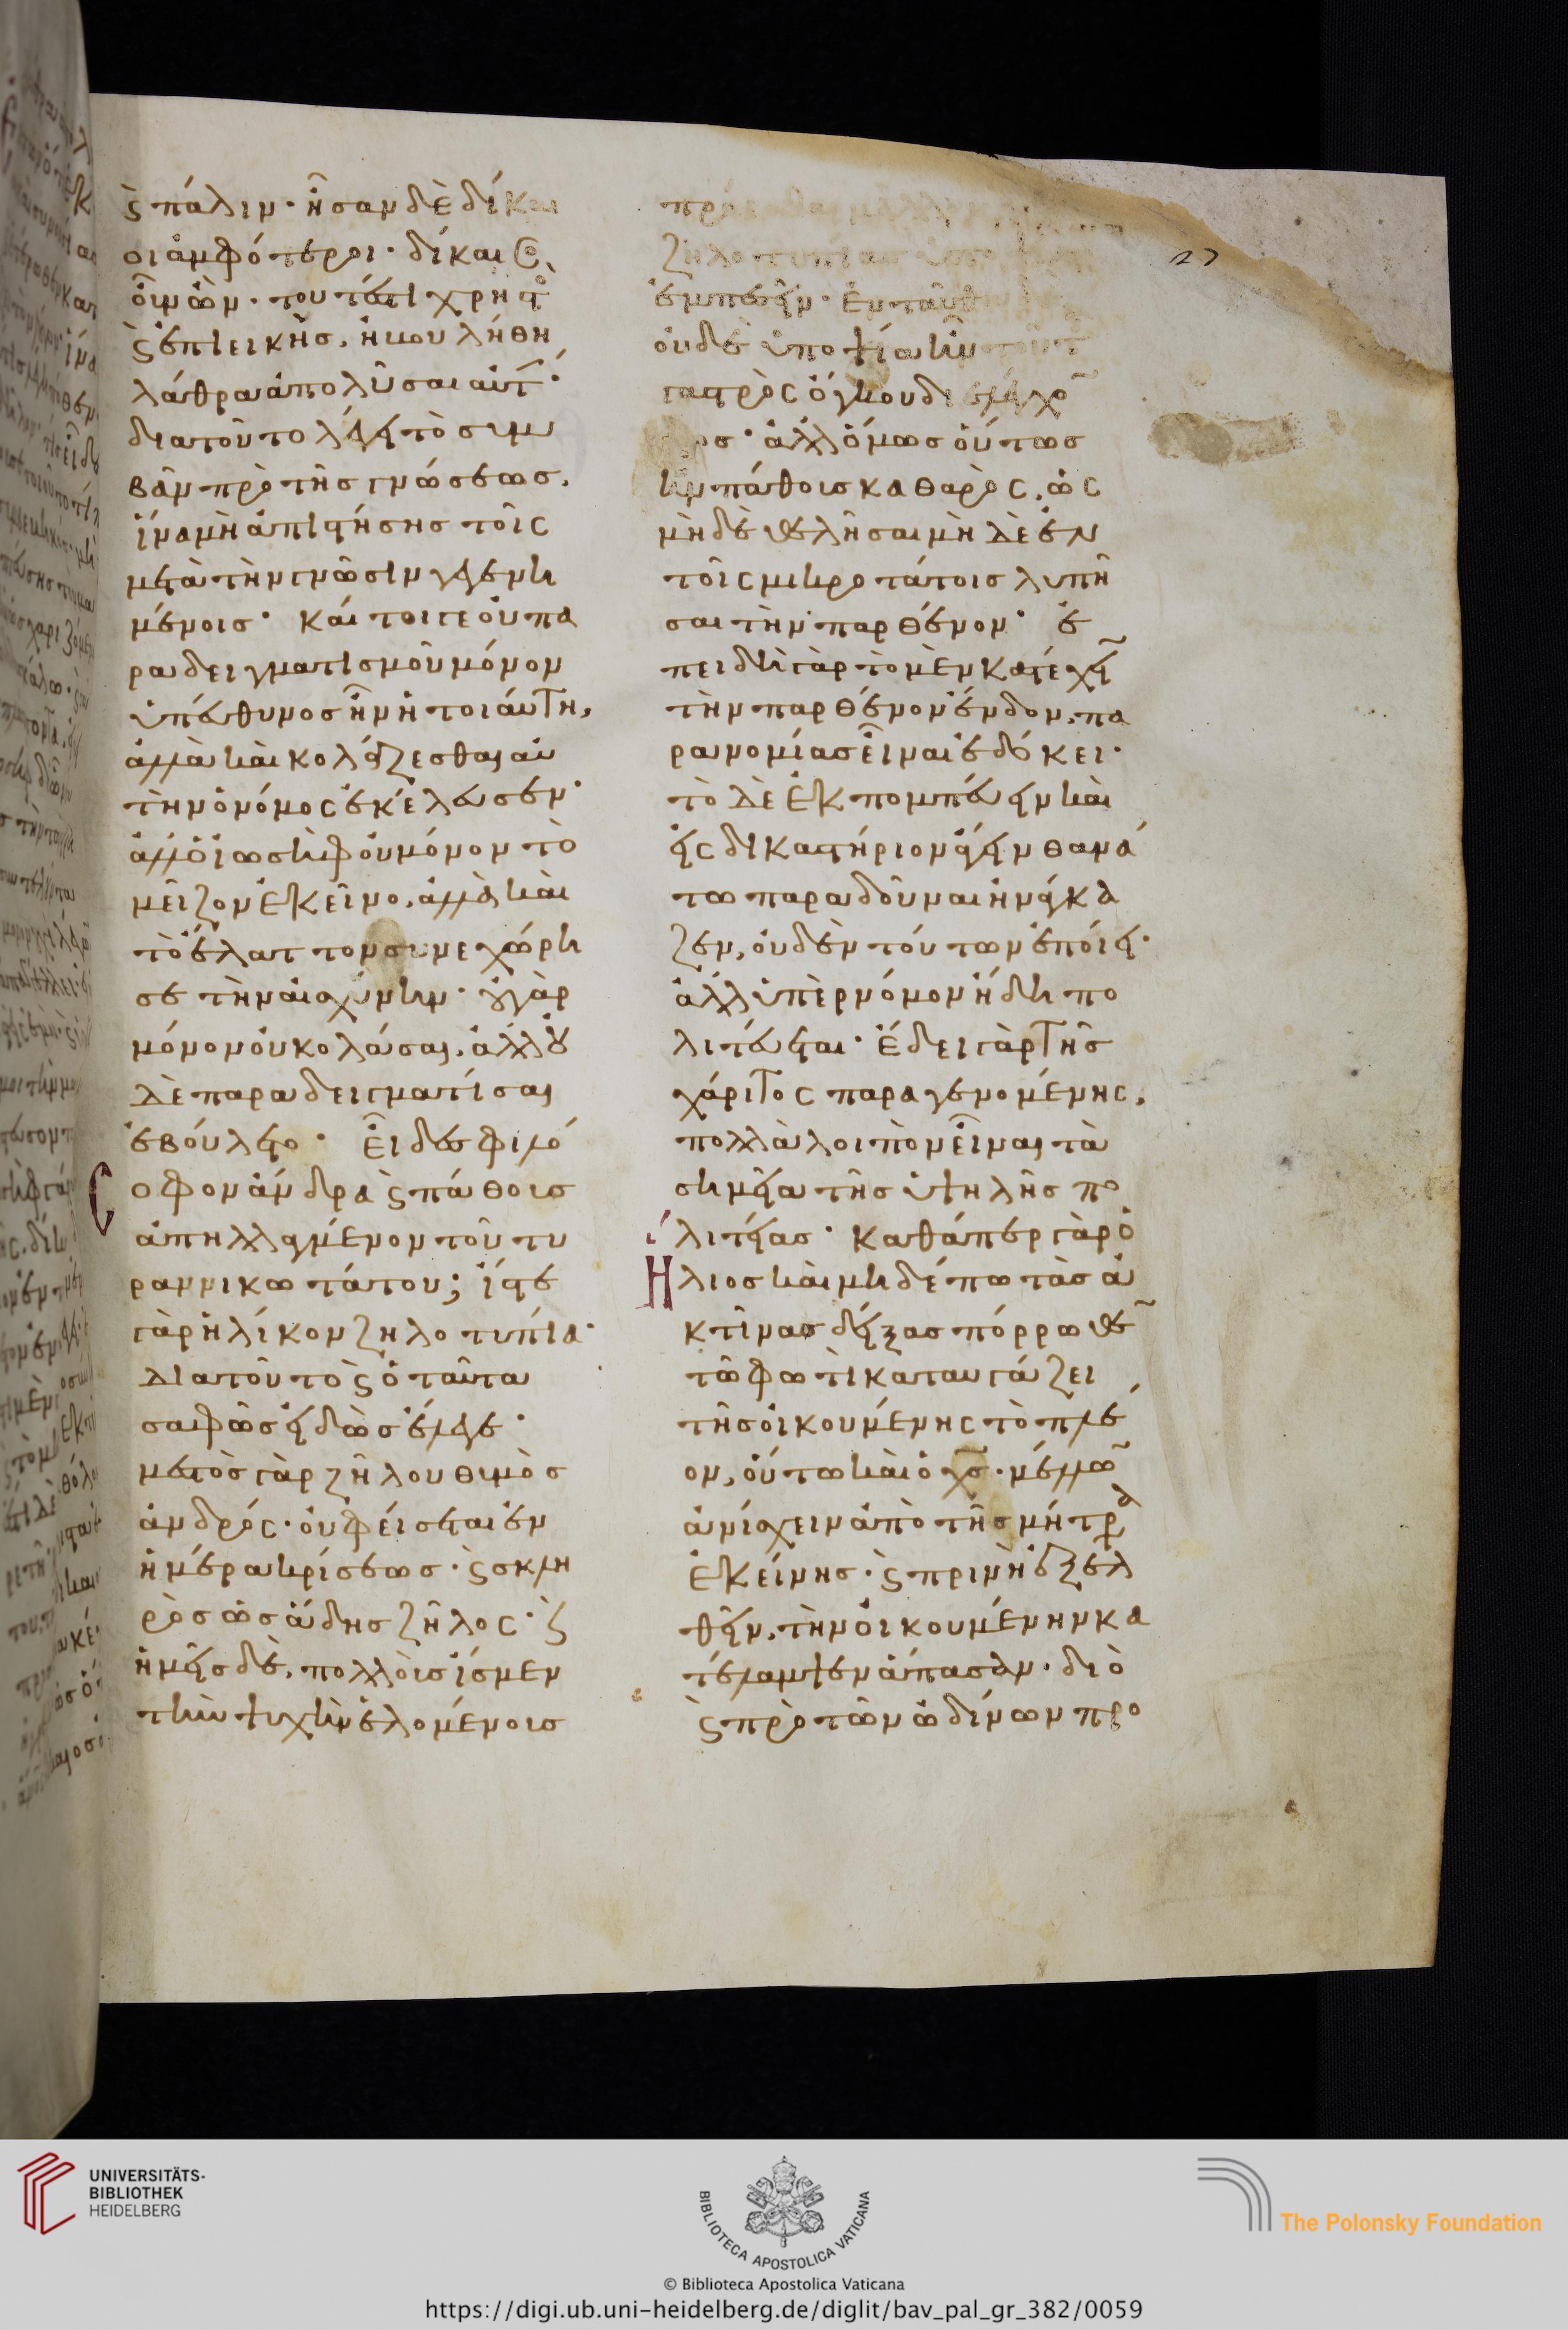 ϛ πάλιν· ἦσαν δὲ δίκαι
οι ἀμφότεροι· δίκαιος
οὖν ὢν· τουτέστι χρηστὸ
ϛ ἐπιεικὴς, ἠβουλήθη
λάθρα ἀπολῦσαι αὐτ·
διατοῦτο λέγει τὸ συμ
βὰν πρὸ τῆς γνώσεως,
ἵνα μὴ ἀπιστήσης τοῖς
μετὰ τὴν γνῶσιν γεγενη
μένοις· καίτοιγε οὐ πα
ραδειγματισμοῦ μόνον
ὑπεύθυνος ἦν ἡ τοιαύτη,
ἀλλὰ καὶ κολάζεσθαι αὐ
τὴν ὁ νόμος ἐκέλευσεν·
ἀλλ' ὁ ἰωσὴφ οὐ μόνον τὸ
μεῖζον ἐκεῖνο, ἀλλὰ καὶ
τὸ ἔλαττον συνεχώρη
σε τὴν αἰσχύνην· οὐ γὰρ
μόνον οὐ κολάσαι, ἀλλ' οὐ
δὲ παραδειγματίσαι
ἐβούλετο· εἶδες φιλό
σοφον ἄνδρα ϛ πάθους
ἀπηλλαγμένον τοῦ τυ
ραννικωτάτου; ἴστε
γὰρ ἡλίκον ζηλοτυπία·
διατοῦτο ϛ ὁ ταῦτα
σαφῶς εἰδὼς ἔλεγε·
μεστὸς γὰρ ζήλου θυμὸς
ἀνδρός· οὐ φείσεται ἐν
ἡμέρα κρίσεως· ϛ σκλη
ρὸς ὡς ἅδης ζῆλος· ϛ
ἡμεῖς δὲ, πολλοὺς ἴσμεν
τὴν ψυχὴν ἑλομένοις
ζηλοτυπίας
ἐμπεσεῖν· ἐνταῦθ
οὐδὲ ὑποψία ἦν
γαστρὸς ὄγκου
ἀλλ' ὅμως οὕτως
ἦν πάθους καθαρὸς, ὡς
μὴ δὲ θελῆσαι μὴ δὲ ἐν
τοῖς μικροτάτοις λυπῆ
σαι τὴν παρθένον· ἐ
πειδὴ γὰρ τὸ μὲν κατέχειν
τὴν παρθένον ἔνδον, πα
ρανομίας εἶναι ἐδόκει·
τὸ δὲ ἐκπομπεύειν καὶ
εἰς δικαστήριον ἄγειν θανά
τω παραδοῦναι ἠνάγκα
ζεν, οὐδὲν τούτων ἐποίει·
ἀλλ' ὑπὲρ νόμον ἤδη πο
λιτεύεται· ἔδει γὰρ τῆς
χάριτος παραγενομένης,
πολλὰ λοιπὸν εἶναι τὰ
σημεῖα τῆς ὑψηλῆς πο
λιτείας· καθάπερ γὰρ ὁ
ἥλιος καὶ μηδέπω τὰς ἀ
κτῖνας δείξας πόρρωθεν
τῶ φωτὶ καταυγάζει
τῆς οἰκουμένης τὸ πλέ
ον, οὕτω καὶ ὁ χς· μέλλων
ἀνίσχειν ἀπὸ τῆς μήτρας
ἐκείνης· ϛ πρινὴ ἐξελ
θεῖν, τὴν οἰκουμένην κα
τέλαμψεν ἅπασαν· διὸ
ϛ πρὸ τῶν ὠδίνων προ
UNIVERSITÄTS-
BIBLIOTHEK
HEIDELBERG
BIBLIOTECA APOSTOLICA VATICANA
The Polonsky Foundation
© Biblioteca Apostolica Vaticana
https://digi.ub.uni-heidelberg.de/diglit/bav_pal_gr_382/0059